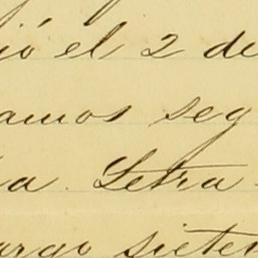 ió el 2 de
amos seg
a. Letra
argo sieten